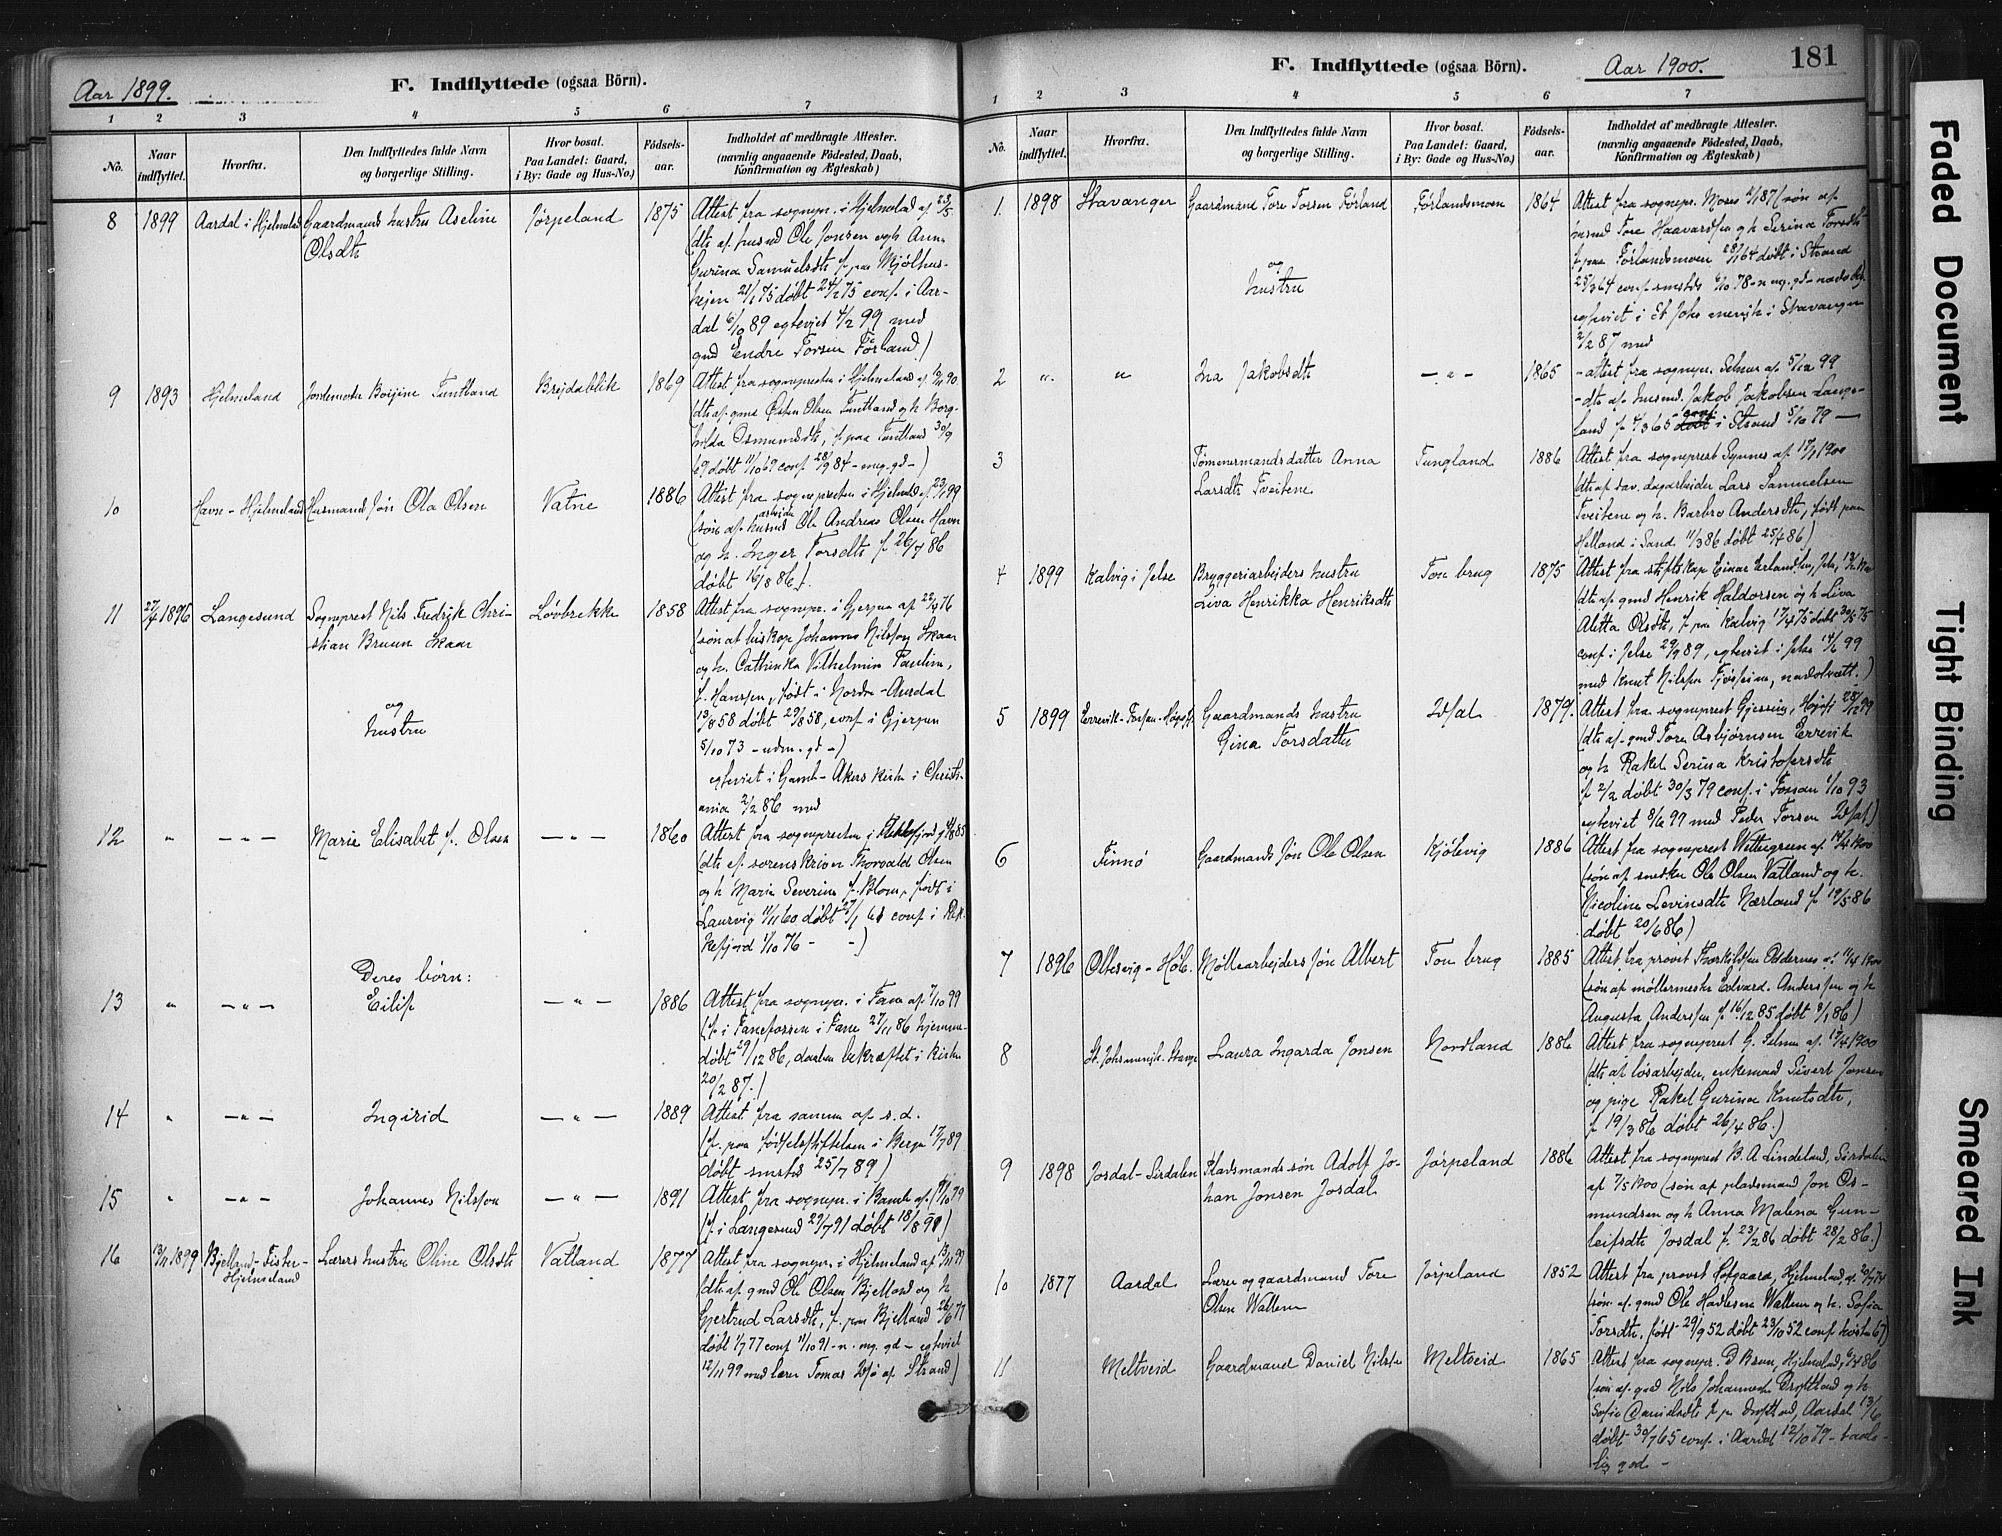 Aar 1899.
F. Indflyttede (ogsaa Börn).
1 2 3 4 5 6 7
No.
Naar indflyttet.
Hvorfra.
Den Indflyttedes fulde Navn og borgerlige Stilling.
Hvor bosat. Paa Landet: Gaard, i By: Gade og Hus-No.)
Fødsels-aar.
Indholdet af medbragte Attester. (navnlig angaaende Fødested, Daab, Konfirmation og Ægteskab)
8 1899 Aardal i Hjelmeland Gaardmands hustru Aseline Jørpeland 1875 Attest fra sognepr. i Hjelmeland af 23/5
Olsdtr (dtr af husmd Ole Jonsen og h Anna
Gurina Samuelsdtr f. paa Mjølhus-
hejen 21/1 75 døbt 24/2 75 conf. i Aar-
dal 6/10 89 egteviet 4/2 99 med
gmd Endre Torsen Førland.)
9 1893 Hjelmeland Jordemoder Boijine Tuntland Brejdablik 1869 Attest fra sognepresten i Hjelmeland af 90
(dtr af gmd Østen Olsen Tuntland og h Borg-
hilda Osmundsdtr, f. paa Tuntland 30/9
69 døbt 11/10 69 conf 28/9 84 - meg. gd -)
10 Havn - Hjelmeland Husmands søn Ola Olsen Vatne 1886 Attest fra sognepresten i Hjelmld af 23/1 99
(søn af husmd Ole Andreas Olsen Havn
arbeider
og h. Inger Torsdtr f 26/7 86
døbt 16/8 86.)
11 27/4 1896 Langesund Sogneprest Nils Fredrik Chri- Løvbrekke 1858 Attest fra sognepr. i Gjerpen af 22/4 76
stian Bruun Skaar (søn af biskop Johannes Nilsson Skaar
og h. Cathinka Vilhelmine Pauline,
f. Hansen, født i Nordre-Aurdal
og 13/8 58 døbt 29/8 58, conf. i Gjerpen
hustru 5/10 73 - udm. gd -)
egteviet i Gamle Akers kirke i Christi-
ania 2/2 86 med
12 " - " - Marie Elisabet f. Olsen - " - 1860 Attest fra sognepresten i Flekkefjord 85
(dtr af sorenskriver Thorvald Olsen
og h Marie Severine f. Blom, født i
Laurvig 11/11 60 døbt 27/1 61 conf i Flek-
kefjord 1/10 76 - -)
Deres børn:
13 " - " - Eilif - " - 1886 Attest fra sognepr. i Fane af 7/10 99
(f. i Fanefossen i Fane 27/11 86 hjemme-
døbt 29/12 86, daaben bekræftet i kirken
20/2 87.)
14 " - " - Ingirid - " - 1889 Attest fra samme af s. d.
(f. paa fødselsstiftelsen i Bergen 17/7 89
døbt smsteds 25/7 89)
15 " - " - Johannes Nilsson - " - 1891 Attest fra sognepr. i Bamle af
(f. i Langesund 29/7 91 døbt 18/8 91)
16 13/11 1899 Bjelland - Fister - Lærers hustru Oline Olsdtr Vatland 1877 Attest fra sognepr. i Hjelmeland af 13/11 99
Hjelmeland (dtr af gmd Ole Olsen Bjelland og h
Gjertrud Larsdtr, f. paa Bjelland 26/6 77
døbt 1/7 77 conf 11/10 91 - n. mg. gd - egteviet
12/11 99 med lærer Tomas af Strand)
F. Indflyttede (ogsaa Börn).
Aar 1900.
181
1 2 3 4 5 6 7
No.
Naar indflyttet.
Hvorfra.
Den Indflyttedes fulde Navn og borgerlige Stilling.
Hvor bosat. Paa Landet: Gaard, i By: Gade og Hus-No.)
Fødsels-aar.
Indholdet af medbragte Attester. (navnlig angaaende Fødested, Daab, Konfirmation og Ægteskab)
1. 1898 Stavanger Gaardmand Tore Torsen Førland Førlandsmoen 1864 Attest fra sognepr. Moses 87 (søn af
husmd Tore Haavardsen og h Serina Torsdtr
f. paa Førlandsmoen 28/1 64 døbt i Strand
og 25/3 64 conf smsteds 6/10 78 - n mg. gd -
hustru egteviet i St Johs menigh i Stavanger
2/2 87 med
2 " " Ina Jakobsdtr - " - 1865 - attest fra sognepr. Selmer af 5/12 99
- dtr af husmd. Jakob Jakobsen Lange-
land f. 4/3 65 i Strand 5/10 79 —
3 Tømmermandsdatter Anna Tungland 1886 Attest fra sogneprest Synnes af 17/1 1900
Larsdtr Tveitene (dtr af dagarbeider Lars Samuelsen
Tveitene og h. Barbro Andersdtr, født paa
Helland i Sand 11/3 86 døbt 25/4 86)
4 1899 Kalvig i Jelse Bryggeriarbejders hustru Tou brug 1875 Attest fra Einar Erlandsen, Jelse,
Liva Henrikka Henriksdtr (dtr af gmd Henrik Haldorsen og h Liva
Aletta Olsdtr, f. paa Kalvig 17/4 75 døbt 30/5 75
conf i Jelse 29/9 89, egteviet i Jelse 14/6 99
med Knut Nilsen
5 1899 Errevik - Forsan - Høgsfj. Gaardmands hustru Idsal 1879. Attest fra sogneprest Gjessing, Høgsfj 28/12 99
Gina Torsdatter (dtr af gmd Tore Asbjørnsen Errevik
og h Rakel Serina Kristofersdtr
f 2/2 døbt 30/3 79 conf. i Fossan 1/10 93
egteviet 8/6 99 med Peder Torsen Idsal)
6 Finnø Gaardmands søn Ole Olsen Kjølevig 1886 Attest fra sogneprest Wettergreen af 1900
(søn af snedker Ole Olsen Vatland og h.
Nicoline Levinsdtr Nærland f 19/5 86
døbt 20/6 86)
7 1896 Oltesvig - Høle. Møllearbejders søn Albert Tou brug 1885 Attest fra provst Thorkildsen Oddernes af 1900
(søn af møllermester Edvard Anderssen og h
Augusta Anderssen f 16/12 85 døbt 3/1 86)
8 St. Johs menigh. Stavgr Laura Ingarda Jonsen Nordland 1886 Attest fra sogneprest G. Selmer af 1900
(dtr af løsarbejder, enkemand Sivert Jonsen
og pige Rakel Gurina Knutsdtr,
f 19/3 86 døbt 26/4 86.)
9 1898 Josdal - Sirdalen Pladsmands søn Adolf Jo- Jørpeland 1886 Attest fra sogneprest B. A. Lindeland, Sirdalen
han Jonsen Josdal af 7/5 1900 (søn af pladsmand Jon Os-
mundsen og h Anna Malena Gun-
leifsdtr Josdal f. 23/2 86 døbt 28/2 86.)
10 1877 Aardal Lærer og gaardmand Tore Jørpeland 1852 Attest fra provst Hofgaard, Hjelmeland, af 74
Olsen Wallem (søn af gmd Ole Hadlesen Wallem og h. Sofia
Torsdtr, født 29/9 52 døbt 23/10 52 conf høsten 67)
11 Meltveid Gaardmand Daniel Nilsen Meltveid 1865 Attest fra sognepr. D Bruun, Hjelmeland, 86
(søn af gmd Nils Johannesen og h
Sofie Danielsdtr f. pr Aardal 13/6
døbt 30/7 65 conf. i Aardal 12/10 79 - taale-
lig god -
Faded Document
Tight Binding
Smeared Ink